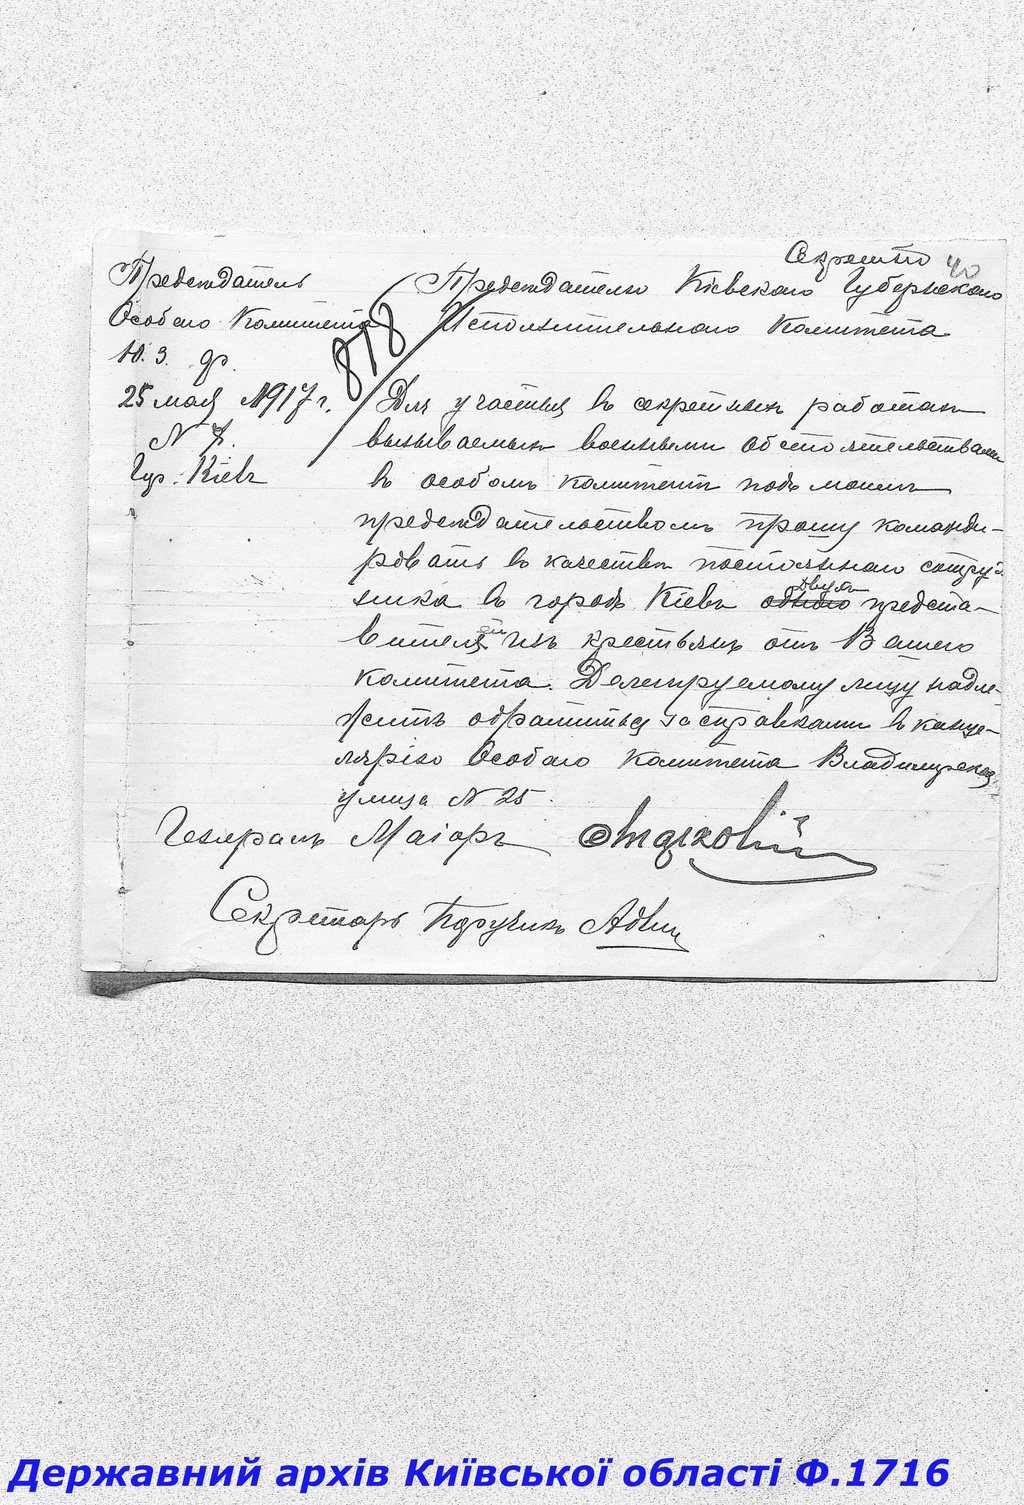 Секретно 40
Председатель
Особаго Комитета
Ю. З. ф.
25 мая 1917 г.
N 7.
Гор. Кіевъ
878
Председателю Кіевскаго Губернскаго
Исполнительнаго Комитета
Для участія въ секретныхъ работахъ
вызываемыхъ военными обстоятельствами
въ особомъ комитетѣ подъ моимъ
председательствомъ прошу команди-
ровать въ качествѣ постояннаго сотруд-
ника въ городъ Кіевъ одного двухъ предста-
вителя ей изъ крестьянъ отъ Вашего
Комитета. Делегируемому лицу надле-
житъ обратиться за справками въ канце-
лярію Особаго Комитета Владимирская
улица N 25.
Генералъ Маіоръ
Секретарь Поручикъ
Державний архів Київської області Ф.1716